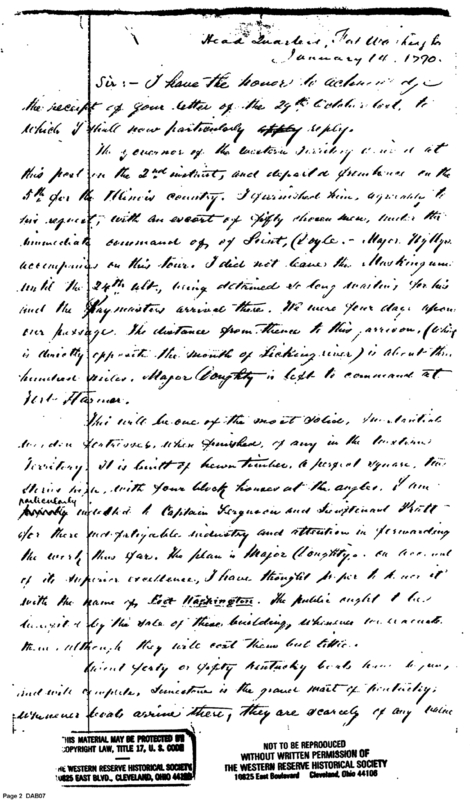 Head Quarters, Fort Washington
January 14. 1790.
Sir:- I have the honor to acknowledge
the receipt of your letter of the 29th October last, to
which I shall now particularly reply.
The governor of the Western Territory arrived at
this post on the 2nd instant, and departed from hence on the
5th for the Illinois country. I furnished him, agreeable to
his request, with an escort of fifty chosen men, under the
immediate command of Lieut. Doyle. - Major Wyllys
accompanies on this tour. I did not leave the Muskingum
until the 24th ult, being detained so long waiting for his
and the Paymasters arrival there. We were four days upon
our passage. The distance from thence to this garrison, (which
is directly opposite the mouth of Licking river) is about three
hundred miles. Major Doughty is left to command at
Fort Harmar.
This will be one of the most solid, substantial
wooden fortresses, when finished, of any in the Western
Territory. It is built of hewn timber, a perfect square, two
stories high, with four block houses at the angles. I am
particularly
indebted to Captain Ferguson and Lieutenant Pratt
for there indefatigable industry and attention in forwarding
the work thus far. The plan is Major Doughty's. On account
of its superior excellence, I have thought proper to honor it
with the name of Fort Washington. The public ought to be
benefited by the sale of these buildings, whenever we evacuate
them, although they will cost them but little.
About forty or fifty Kentucky boats have
and will complete, Limestone is the grand mart of Kentucky;
whenever boats arrive there, they are scarcely of any value
THIS MATERIAL MAY BE PROTECTED BY
COPYRIGHT LAW, TITLE 17, U. S. CODE
THE WESTERN RESERVE HISTORICAL SOCIETY
10825 EAST BLVD., CLEVELAND, OHIO 44106
NOT TO BE REPRODUCED
WITHOUT WRITTEN PERMISSION OF
THE WESTERN RESERVE HISTORICAL SOCIETY
10825 East Boulevard Cleveland, Ohio 44106
Page 2 DAB07